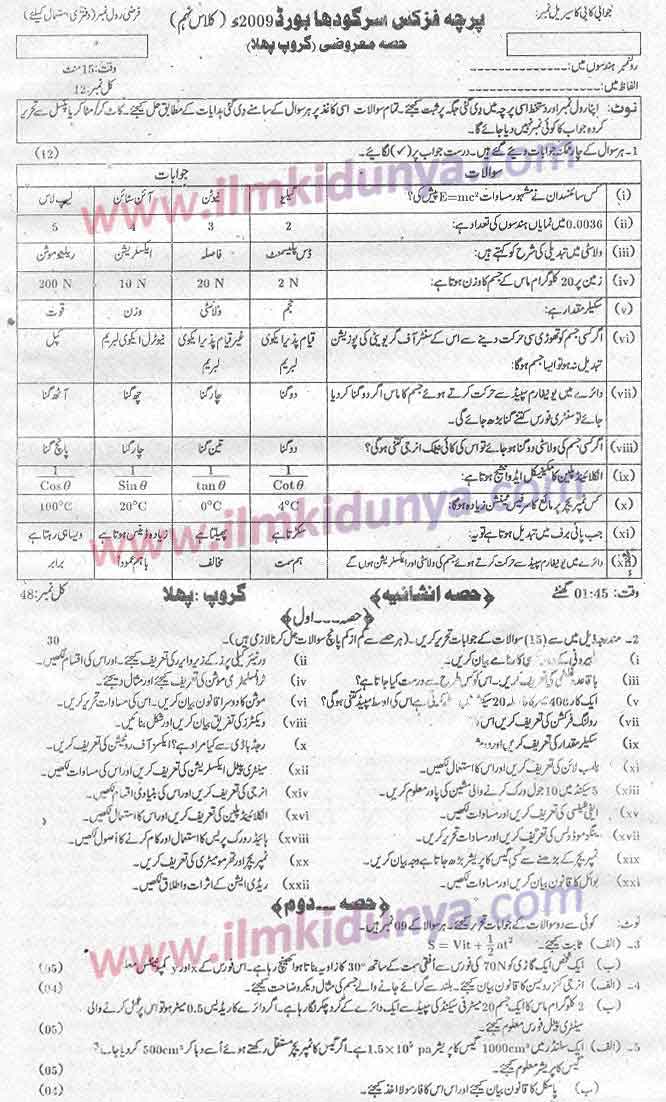 جوابی کاپی کا سیریل نمبر: پرچہ فزکس سرگودھا بورڈ 2009ء (کلاس نہم) فرضی رول نمبر (دفتری استعمال کیلئے)
حصہ معروضی (گروپ پہلا)
رولنمبر ہندسوں میں: وقت: 15 منٹ
الفاظ میں: کل نمبر: 12
نوٹ: اپنا رول نمبر اور دستخط اسی پرچہ میں دی گئی جگہ پر ثبت کیجئے۔ تمام سوالات اسی کاغذ پر ہر سوال کے سامنے دی گئی ہدایات کے مطابق حل کیجئے۔ کاٹ کر/مٹا کر یا پنسل سے تحریر
کردہ جواب کا کوئی نمبر نہیں دیا جائے گا۔
1۔ ہر سوال کے چار ممکنہ جوابات دیئے گئے ہیں۔ درست جواب پر (✓) لگائیے۔ (12)
سوالات جوابات
(i) کس سائنسدان نے مشہور مساوات E=mc² پیش کی؟ گیلیلیو نیوٹن آئن سٹائن لیپ لاس
(ii) 0.0036 میں نمایاں ہندسوں کی تعداد ہے: 2 3 4 5
(iii) ولاسٹی میں تبدیلی کی شرح کو کہتے ہیں: ڈس پلیسمنٹ فاصلہ ایکسلریشن ریلیٹو موشن
(iv) زمین پر 20 کلوگرام ماس کے جسم کا وزن ہوتا ہے: 2 N 20 N 10 N 200 N
(v) سکیلر مقدار ہے: حجم ولاسٹی وزن قوت
(vi) اگر کسی جسم کو تھوڑی سی حرکت دینے سے اس کے سنٹر آف گریویٹی کی پوزیشن تبدیل نہ ہو تو ایسا جسم ہوگا: قیام پذیر ایکوی لبریم غیر قیام پذیر ایکوی لبریم نیوٹرل ایکوی لبریم کپل
(vii) دائرے میں یونیفارم سپیڈ سے حرکت کرتے ہوئے جسم کا ماس اگر دو گنا کر دیا جائے تو سنٹری فورس کتنے گنا بڑھ جائے گی۔ دو گنا چار گنا چھ گنا آٹھ گنا
(viii) اگر کسی جسم کی ولاسٹی دو گنا ہو جائے تو اس کی کائی نیٹک انرجی کتنی ہوگی؟ دو گنا تین گنا چار گنا پانچ گنا
(ix) انکلائینڈ پلین کا مکینیکل ایڈوانٹیج ہوتا ہے: 1/Cot θ 1/tan θ 1/Sin θ 1/Cos θ
(x) کس ٹمپریچر پر مائع کا سرفیس ٹینشن زیادہ ہوگا: 4°C 0°C 20°C 100°C
(xi) جب پانی برف میں تبدیل ہوتا ہے تو یہ: سکڑتا ہے پھیلتا ہے زیادہ ڈینس ہوتا ہے ویسا ہی رہتا ہے
دائرے میں یونیفارم سپیڈ سے حرکت کرتے ہوئے جسم کی ولاسٹی اور ایکسلریشن ہوں گے ہم سمت مخالف باہم عموداً برابر
وقت: 01:45 گھنٹے (حصہ انشائیہ) گروپ: پہلا کل نمبر: 48
(حصہ ۔۔۔ اول)
2۔ مندرجہ ذیل میں سے (15) سوالات کے جوابات تحریر کریں۔ (ہر حصے سے کم از کم پانچ سوالات حل کرنا لازمی ہیں)۔ 30
(i البیرونی کے کارنامے بیان کریں۔ (ii ورنیئر کیلی پرز کے زیرو ایرر کی تعریف کیجئے۔ اور اس کی اقسام لکھیں۔
(iii باقاعدہ غلطی کی تعریف کریں۔ اس کو کس طرح سے درست کیا جاتا ہے؟ (iv ٹرانسلیٹری موشن کی تعریف کیجئے اور مثال دیجئے۔
(v ایک کار 400 میٹر کا فاصلہ 20 سیکنڈ کرتی ہے اس کی اوسط سپیڈ کتنی ہوگی؟ (vi موشن کا دوسرا قانون بیان کریں۔ اس کی مساوات تحریر کریں۔
(vii رولنگ فرکشن کی تعریف کریں اس (viii ویکٹرز کی تفریق بیان کریں اور شکل بنائیں۔
(ix سکیلر مقدار کی تعریف کریں اور دو (x رجڈ باڈی سے کیا مراد ہے؟ ایکسز آف روٹیشن کی تعریف کریں۔
(xi پلمب لائن کی تعریف کریں اور اس کا استعمال لکھیں۔ (xii سینٹری پیٹل ایکسلریشن کی تعریف کریں اور اس کی مساوات لکھیں۔
(xiii 5 سیکنڈ میں 10 جول ورک کرنے والی مشین کی پاور معلوم کریں۔ (xiv انرجی کی تعریف کریں اور اس کی بنیادی اقسام لکھیں۔
(xv ایفی شنسی کی تعریف کریں اور مساوات لکھیں۔ (xvi انکلائینڈ پلین کی تعریف کریں اور اس کا استعمال لکھیں۔
(xvii ینگز موڈولس کی تعریف کریں اور مساوات تحریر کریں۔ (xviii ہائیڈرولک پریس کا استعمال اور کام کرنے کا اصول لکھیں۔
(xix ٹمپریچر کے بڑھنے سے کسی گیس کا پریشر بڑھ جاتا ہے وجہ بیان کریں۔ (xx ٹمپریچر اور تھرمومیٹری کی تعریف کریں۔
(xxi بوائل کا قانون بیان کریں اور مساوات لکھیں۔ (xxii ریڈی ایشن کے اثرات و اطلاق لکھیں۔
(حصہ ۔۔۔ دوم)
نوٹ: کوئی سے دو سوالات کے جوابات تحریر کیجئے۔ ہر سوال کے 09 نمبر ہیں۔
3۔ (الف) ثابت کیجئے۔ S = Vit + ½at²
(ب) ایک شخص ایک گاڑی کو 70N کی فورس سے اُفقی سمت کے ساتھ 30° کا زاویہ بناتا ہوا کھینچ رہا ہے۔ اس فورس کے x اور y کمپونینٹس (05)
4۔ (الف) انرجی کنزرویشن کا قانون بیان کیجئے۔ بلندی سے گرائے جانے والے جسم کی مثال دیکر وضاحت کیجئے۔ (04)
(ب) 2 کلوگرام ماس کا ایک جسم 20 میٹر فی سیکنڈ کی سپیڈ سے ایک دائرے کے گرد چکر لگا رہا ہے۔ اگر دائرے کا ریڈیس 0.5 میٹر ہو تو اس پر عمل کرنے والی
سینٹری پیٹل فورس معلوم کیجئے۔ (05)
5۔ (الف) ایک سلنڈر میں 1000cm³ گیس کا پریشر 1.5×10⁵ pa ہے۔ اگر گیس کا ٹمپریچر مستقل رکھتے ہوئے اُسے دبا کر 500cm³ کر دیا جائے
گیس کا پریشر معلوم کیجئے۔ (05)
(ب) پاسکل کا قانون بیان کیجئے اور اس کا فارمولا اخذ کیجئے۔ (04)
www.ilmkidunya.com
www.ilmkidunya.com
www.ilmkidunya.com